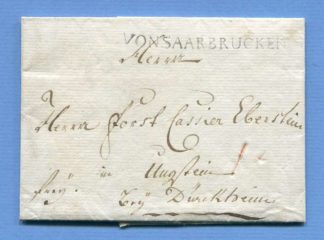 VON SAARBRUCKEN
Herrn
Herrn Forst Cassier Eberstein
in
Ungstein
frey. Bey Dürckheim